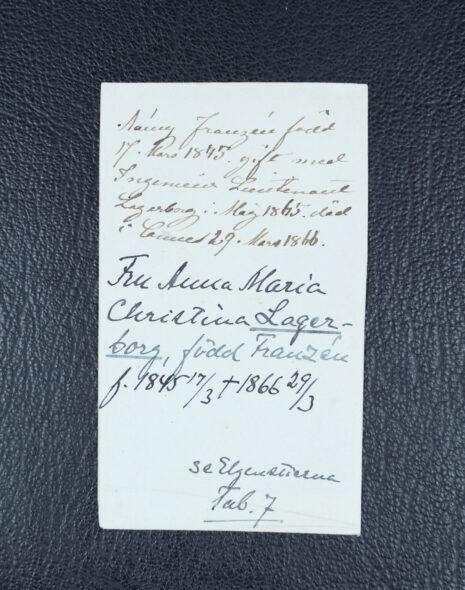 Nanny Franzén född
17. Mars 1845. gift med
Ingenieur Lieutenant
Lagerborg i Maj 1865. död
i Cannes 29. Mars 1866.
Fru Anna Maria
Christina Lager-
borg, född Franzén
f. 1845 17/3 † 1866 29/3
se Elgenstierna
Tab. 7